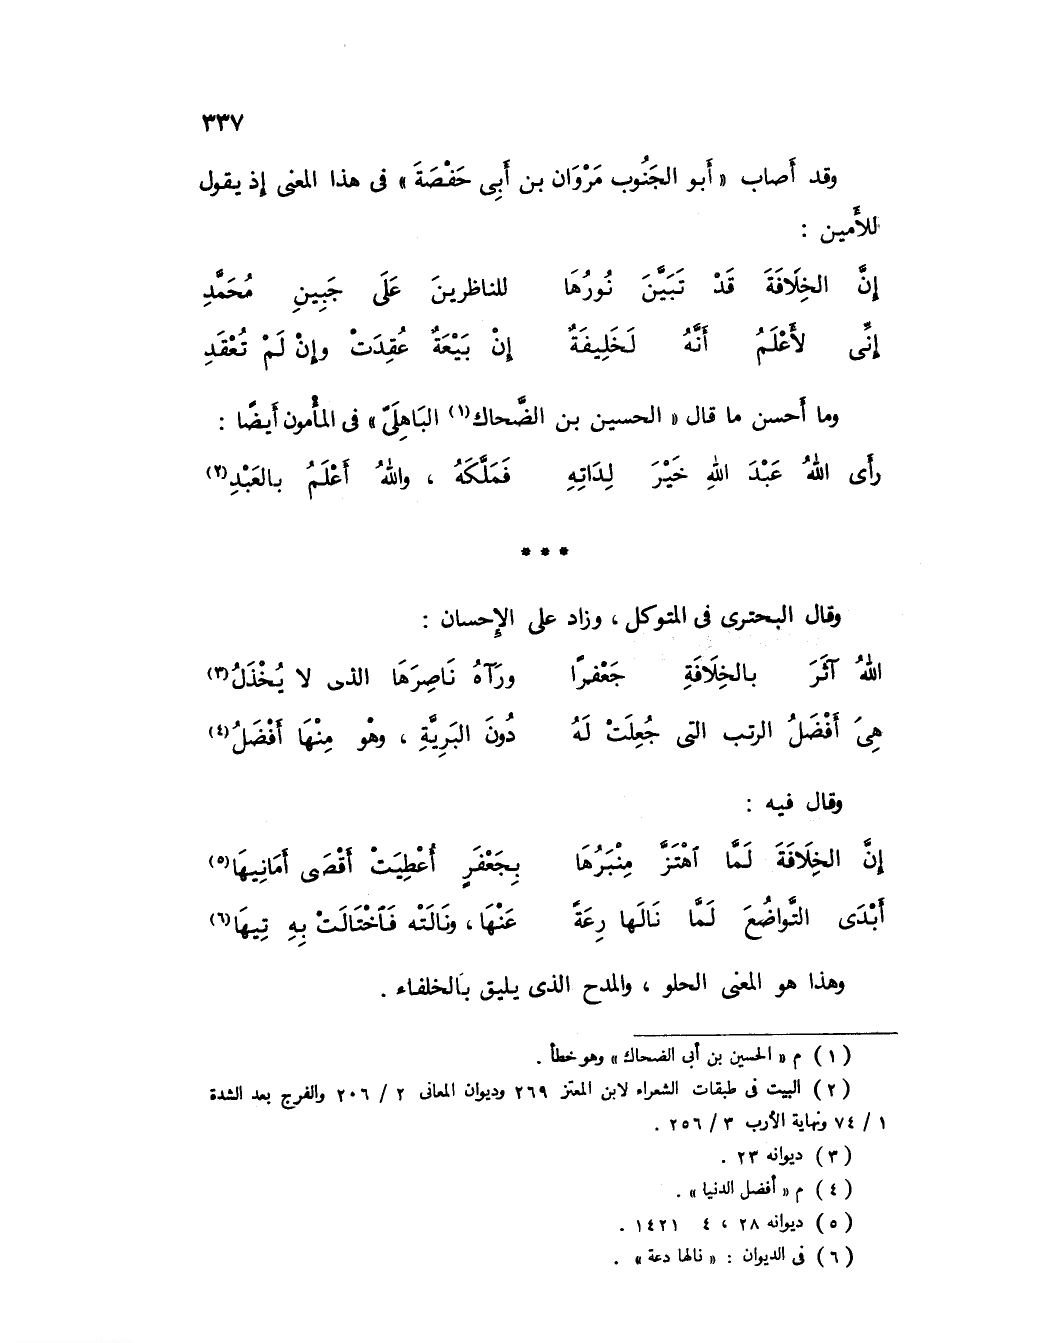 ٣٣٧
وقد أَصاب « أَبو الجَنُوب مَرْوَان بن أَبِى حَفْصَةَ » فى هذا المعنى إِذ يقول
للأَمين :
إِنَّ الخِلَافَةَ قَدْ تَبَيَّنَ نُورُهَا للناظرينَ عَلَى جَبِينِ مُحَمَّدِ
إِنِّى لأَعْلَمُ أَنَّهُ لَخَلِيفَةٌ إِنْ بَيْعَةٌ عُقِدَتْ وإِنْ لَمْ تُعْقَدِ
وما أَحسن ما قال « الحسين بن الضَّحاك(١) البَاهِلَىّ » فى المأْمون أَيضًا :
رأَى اللهُ عَبْدَ اللهِ خَيْرَ لِدَاتِهِ فَمَلَّكَهُ ، واللهُ أَعْلَمُ بالعَبْدِ(٢)
* * *
وقال البحترى فى المتوكل ، وزاد على الإِحسان :
اللهُ آثَرَ بالخِلَافَةِ جَعْفرًا ورَآهُ نَاصِرَهَا الذى لا يُخْذَلُ(٣)
هِىَ أَفْضَلُ الرتب التى جُعِلَتْ لَهُ دُونَ البَرِيَّةِ ، وهْو مِنْهَا أَفْضَلُ(٤)
وقال فيه :
إِنَّ الخِلَافَةَ لَمَّا ٱهْتَزَّ مِنْبَرُهَا بِجَعْفَرٍ أُعْطِيَتْ أَقْصَى أَمَانِيهَا(٥)
أَبْدَى التَّواضُعَ لَمَّا نَالَها رِعَةً عَنْهَا ، ونَالَتْه فَٱخْتَالَتْ بِهِ تِيهَا(٦)
وهذا هو المعنى الحلو ، والمدح الذى يليق بالخلفاء .
( ١ ) م « الحسين بن أبى الضحاك » وهو خطأ .
( ٢ ) البيت فى طبقات الشعراء لابن المعتز ٢٦٩ وديوان المعانى ٢ / ٢٠٦ والفرج بعد الشدة
١ / ٧٤ ونهاية الأرب ٣ / ٢٥٦ .
( ٣ ) ديوانه ٢٣ .
( ٤ ) م « أفضل الدنيا » .
( ٥ ) ديوانه ٢٨ ، ٤ ١٤٢١ .
( ٦ ) فى الديوان : « نالها دعة » .